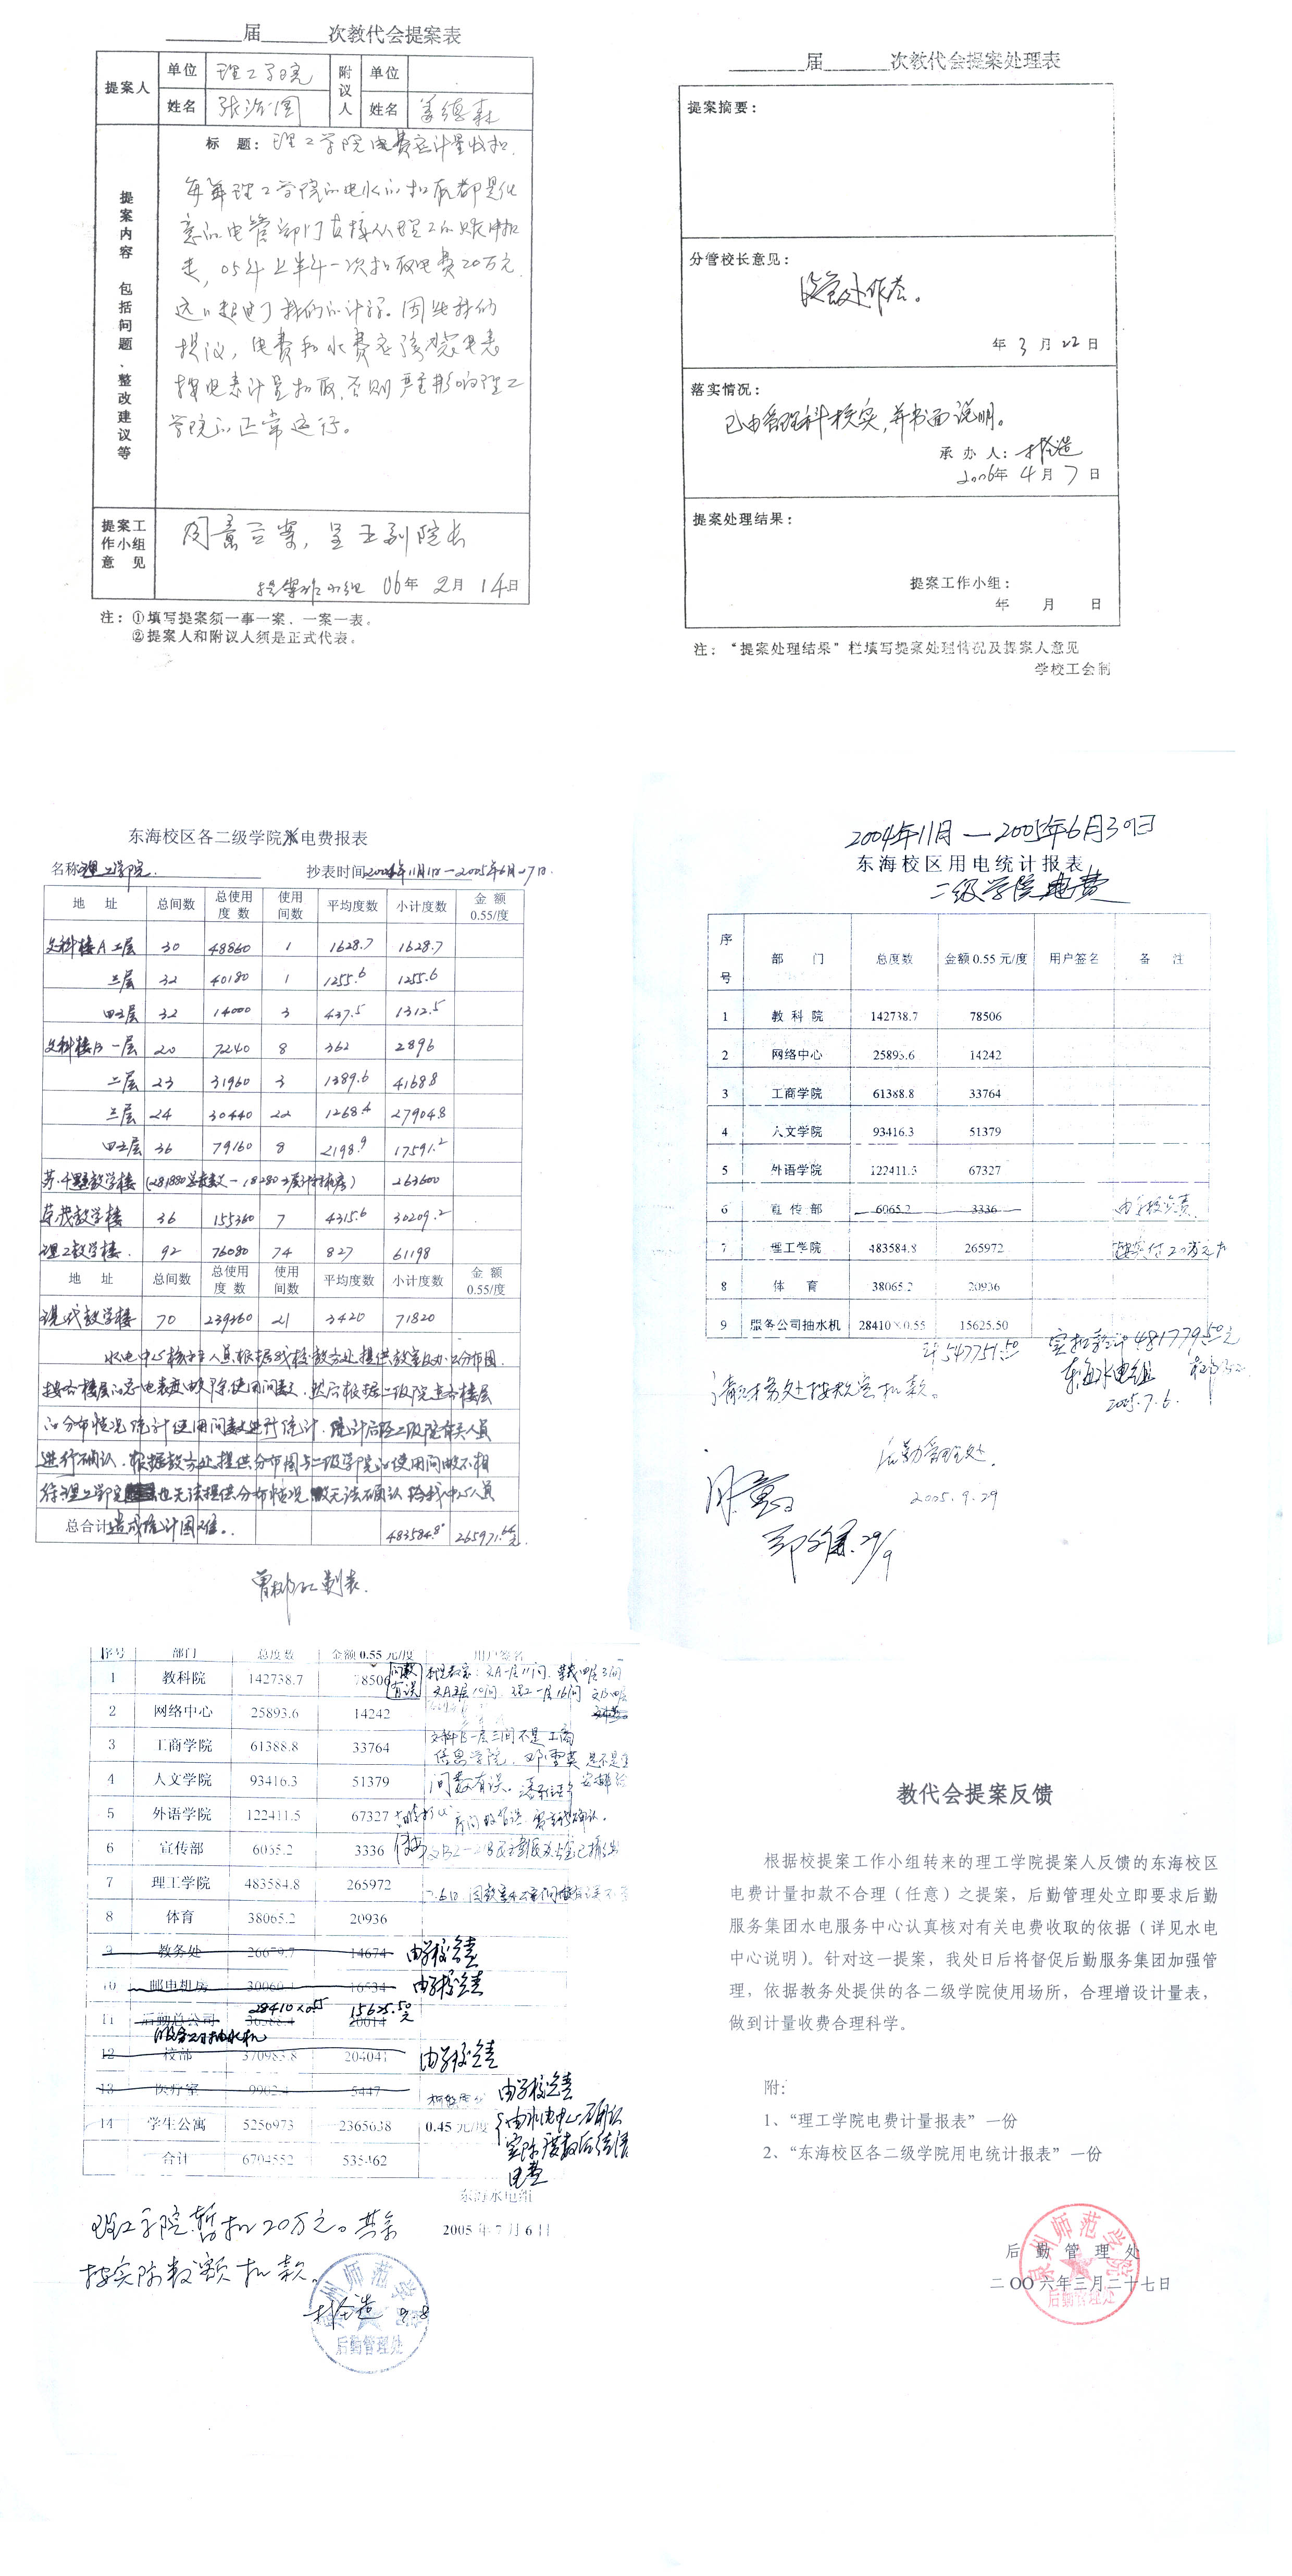 届 次教代会提案表
提案人 单位 理工学院 附议人 单位
姓名 姓名
提案内容 包括问题、整改建议等
标 题：理工学院电费应计量收扣.
每年理工学院的电水的扣取都是任
意的电管部门直接从理工的账中扣
走，05年上半年一次扣取电费20万元.
远远超过了我们的计算。因此我们
提议，电费和水费应该安电表
按电表计量扣取，否则严重影响理工
学院的正常运行。
提案工作小组意见
同意立案，呈王副院长
提案工作小组 06年2月14日
注：①填写提案须一事一案，一案一表。
②提案人和附议人须是正式代表。
届 次教代会提案处理表
提案摘要：
分管校长意见：
后管处作答。
年3月22日
落实情况：
已由管理科核实，并书面说明。
承 办 人：
2006年4月7日
提案处理结果：
提案工作小组：
年 月 日
注：“提案处理结果”栏填写提案处理情况及提案人意见
学校工会制
东海校区各二级学院电费报表
名称 理工学院. 抄表时间2004年11月1日—2005年6月27日.
地 址 总间数 总使用度 数 使用间数 平均度数 小计度数 金 额0.55/度
文科楼A二层 30 48860 1 1628.7 1628.7
三层 32 40180 1 1255.6 1255.6
四五层 32 14000 3 437.5 1312.5
文科楼B一层 20 7240 8 362 2896
二层 23 31960 3 1389.6 4168.8
三层 24 30440 22 1268.4 27904.8
四五层 36 79160 8 2198.9 17591.2
263600
36 155360 7 4315.6 30209.2
理工教学楼. 92 76080 74 827 61198
地 址 总间数 总使用度 数 使用间数 平均度数 小计度数 金 额0.55/度
现代教学楼 70 239360 21 3420 71820
水电中心核算人员根据我校教务处提供教室及办公分布图.
按每楼层的总电表度数除使用间数，然后根据二级院在各楼层
的分布情况统计使用间数进行统计，统计后经二级院有关人员
进行确认，根据教务处提供分布图与二级学院的使用间数不相
符理工学院也无法提供分布情况故无法确认给我中心人员
总合计 造成统计困难。 483584.8 265971.64元
制表.
2004年11月—2005年6月30日
东海校区用电统计报表
二级学院电费
序号 部 门 总度数 金额0.55元/度 用户签名 备 注
1 教科院 142738.7 78506
2 网络中心 25893.6 14242
3 工商学院 61388.8 33764
4 人文学院 93416.3 51379
5 外语学院 122411.5 67327
6 宣传部 6065.2 3336 由学校负责
7 理工学院 483584.8 265972 暂实付20万元
8 体 育 38065.2 20936
9 服务公司抽水机 28410×0.55 15625.50
计547751.50 实扣款计481779.50元
请财务处按规定扣款。 东海水电组
2005.7.6.
后勤管理处.
2005.9.29
29/9
序号 部门 总度数 金额0.55元/度 用户签名
1 教科院 142738.7 78506 间数有误
2 网络中心 25893.6 14242
3 工商学院 61388.8 33764 文科B一层三间不是工商
4 人文学院 93416.3 51379 间数有误.
5 外语学院 122411.5 67327
6 宣传部 6065.2 3336
7 理工学院 483584.8 265972
8 体育 38065.2 20936
9 教务处 26679.7 14674 由学校负责
10 邮电机房 30060.4 16534 由学校负责
28410×0.55 15625.50元
11 后勤总公司 36388.4 20014
服务公司抽水机
12 校部 370983.8 204041 由学校负责
13 医疗室 9902.4 5447 由学校负责
14 学生公寓 5256973 2365638 0.45元/度 由水电中心确认
实际度数后结清
电费
合计 6704552 535462
东海水电组
理工学院暂扣20万元。其余 2005年7月6日
按实际数额扣款。
9.8
后勤管理处
教代会提案反馈
根据校提案工作小组转来的理工学院提案人反馈的东海校区
电费计量扣款不合理（任意）之提案，后勤管理处立即要求后勤
服务集团水电服务中心认真核对有关电费收取的依据（详见水电
中心说明）。针对这一提案，我处日后将督促后勤服务集团加强管
理，依据教务处提供的各二级学院使用场所，合理增设计量表，
做到计量收费合理科学。
附：
1、“理工学院电费计量报表”一份
2、“东海校区各二级学院用电统计报表”一份
泉州师范学院
后勤管理处
二〇〇六年三月二十七日
后勤管理处